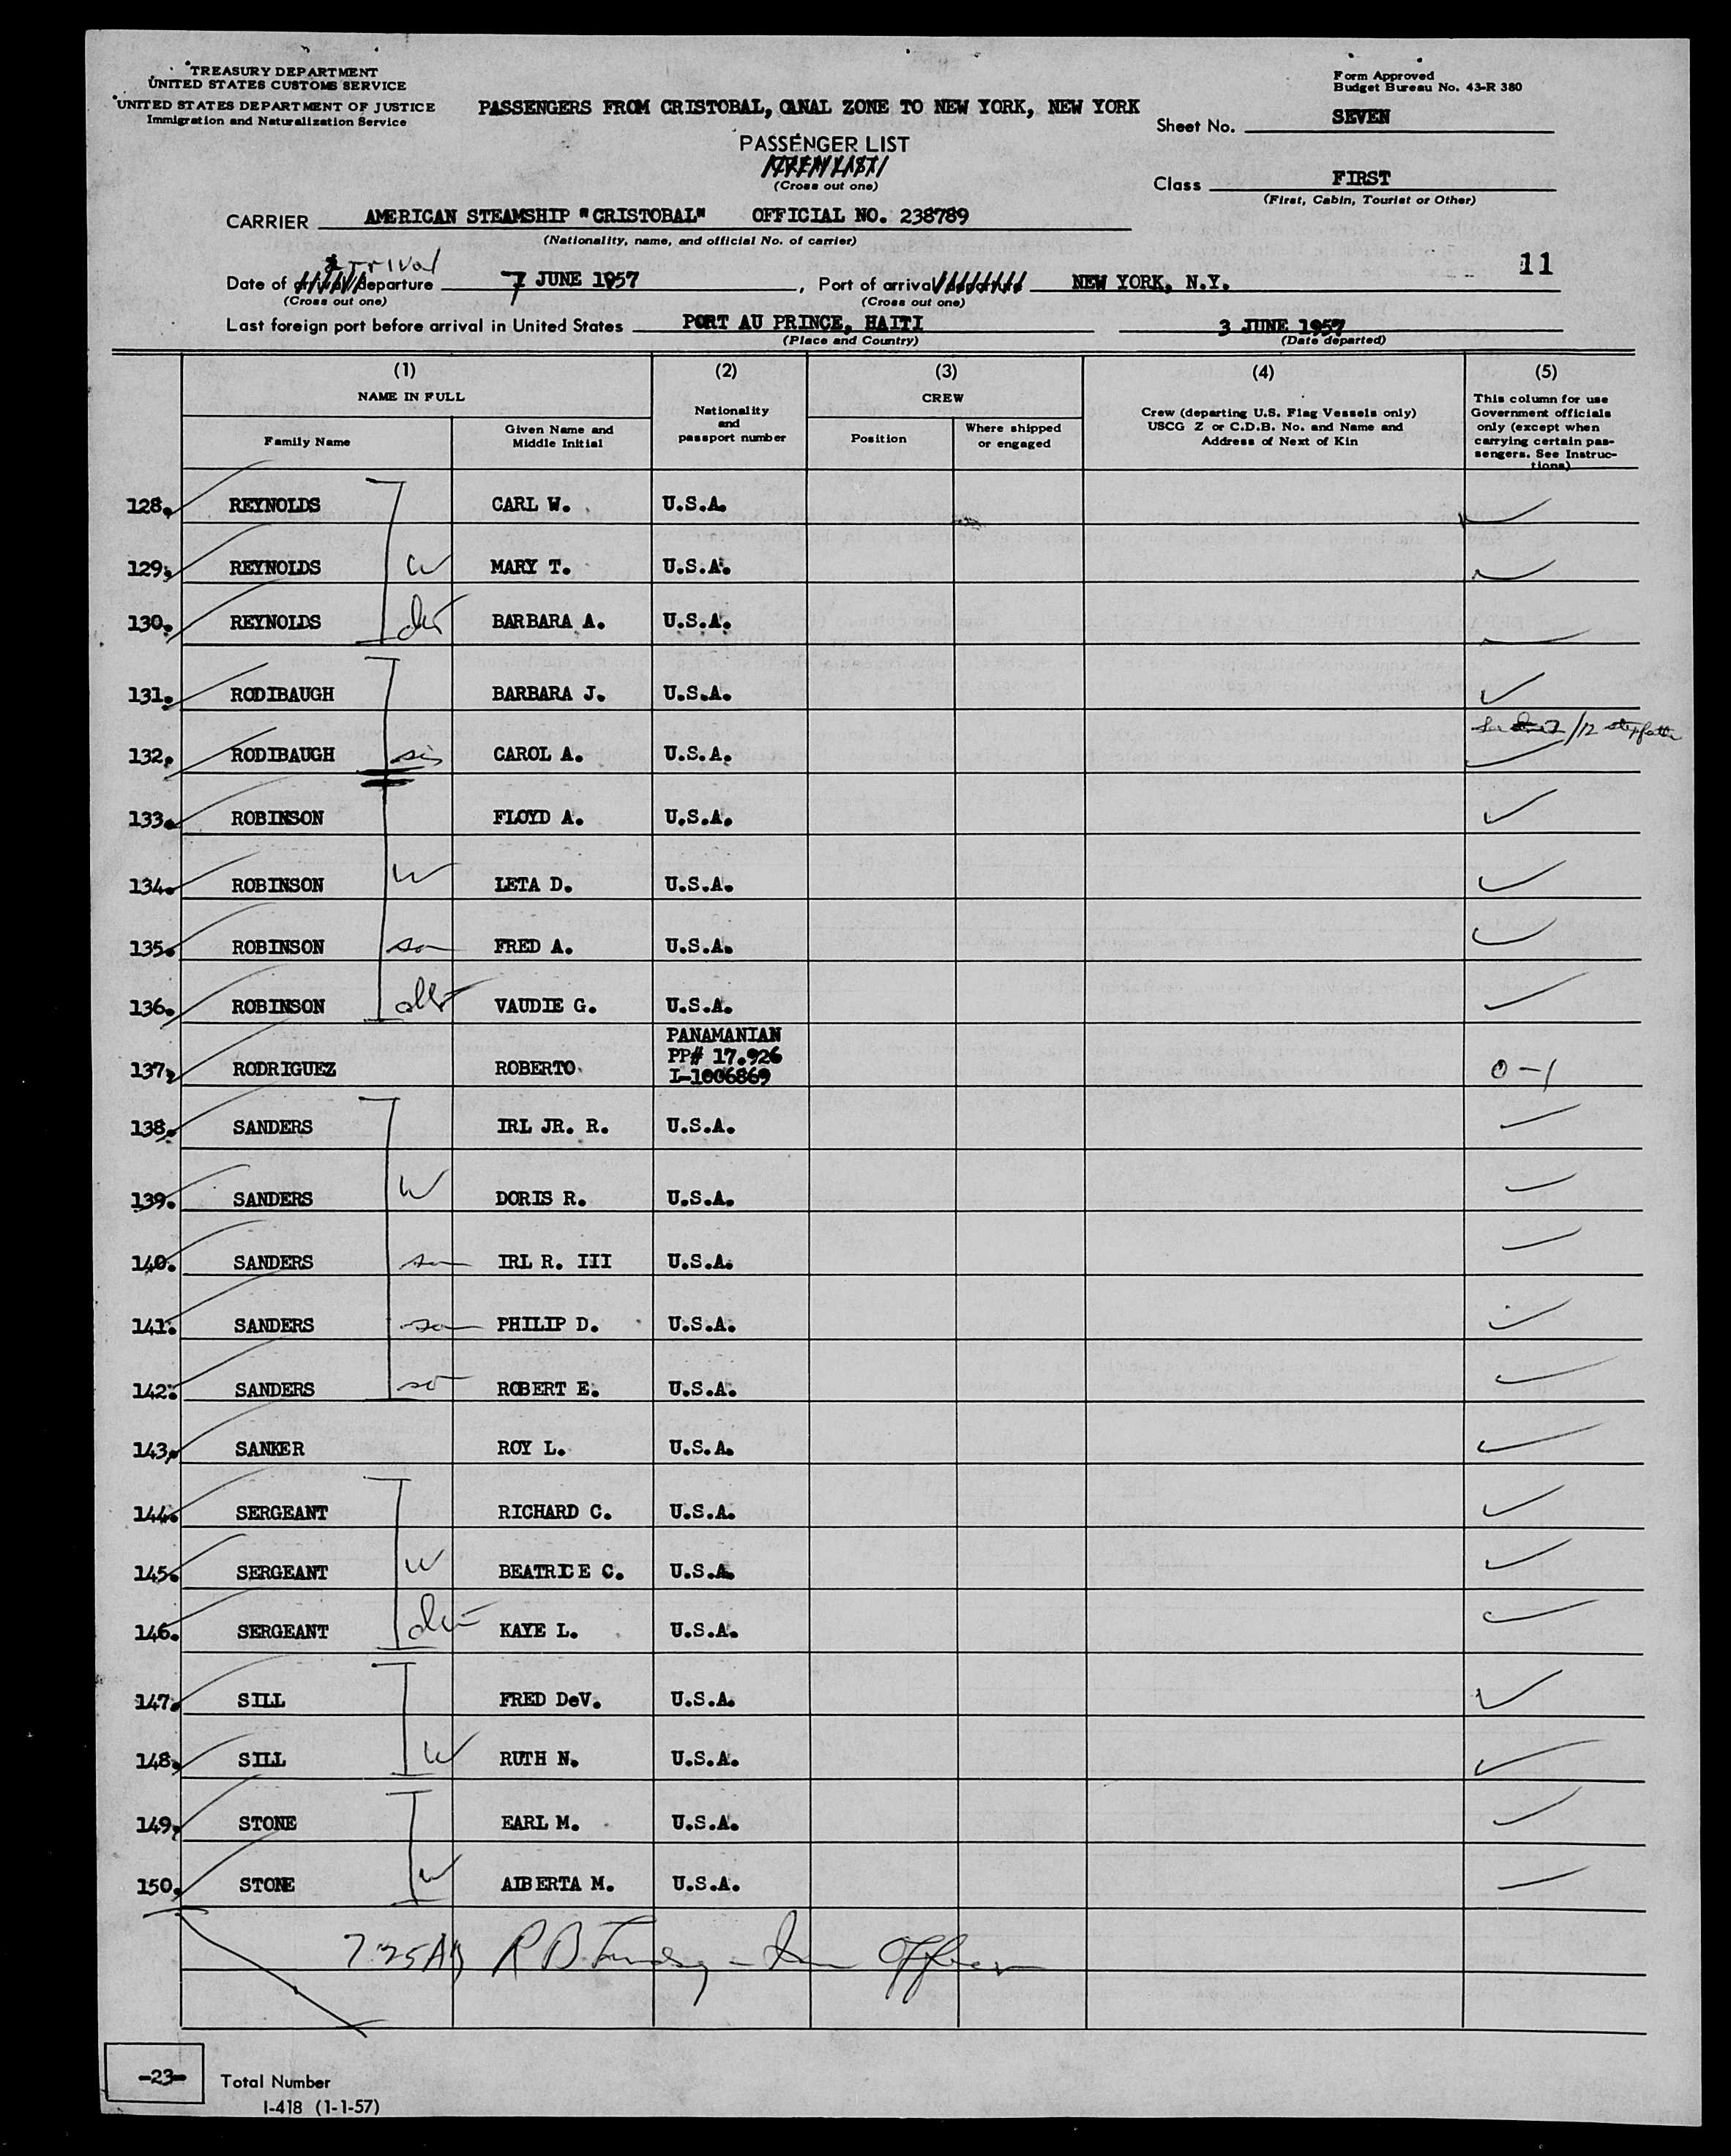 TREASURY DEPARTMENT
UNITED STATES CUSTOMS SERVICE
UNITED STATES DEPARTMENT OF JUSTICE
Immigration and Naturalization Service
Form Approved
Budget Bureau No. 43-R 380
PASSENGERS FROM CRISTOBAL, CANAL ZONE TO NEW YORK, NEW YORK
Sheet No. SEVEN
PASSENGER LIST
(Cross out one)
Class FIRST
(First, Cabin, Tourist or Other)
CARRIER AMERICAN STEAMSHIP "CRISTOBAL" OFFICIAL NO. 238789
(Nationality, name, and official No. of carrier)
arrival
11
Date of arrival/departure 7 JUNE 1957, Port of arrival NEW YORK, N.Y.
(Cross out one) (Cross out one)
Last foreign port before arrival in United States PORT AU PRINCE, HAITI 3 JUNE 1957
(Place and Country) (Date departed)
(1) (2) (3) (4) (5)
NAME IN FULL
Family Name
Given Name and
Middle Initial
Nationality
and
passport number
CREW
Position
Where shipped
or engaged
Crew (departing U.S. Flag Vessels only)
USCG Z or C.D.B. No. and Name and
Address of Next of Kin
This column for use
Government officials
only (except when
carrying certain pas-
sengers. See Instruc-
tions)
128. REYNOLDS CARL W. U.S.A.
129. REYNOLDS W MARY T. U.S.A.
130. REYNOLDS dtr BARBARA A. U.S.A.
131. RODIBAUGH BARBARA J. U.S.A.
132. RODIBAUGH sis CAROL A. U.S.A. /12 stepfather
133. ROBINSON FLOYD A. U.S.A.
134. ROBINSON W LETA D. U.S.A.
135. ROBINSON son FRED A. U.S.A.
136. ROBINSON dtr VAUDIE G. U.S.A.
137. RODRIGUEZ ROBERTO PANAMANIAN
PP# 17.926
I-1006869
0-1
138. SANDERS IRL JR. R. U.S.A.
139. SANDERS W DORIS R. U.S.A.
140. SANDERS son IRL R. III U.S.A.
141. SANDERS son PHILIP D. U.S.A.
142. SANDERS son ROBERT E. U.S.A.
143. SANKER ROY L. U.S.A.
144. SERGEANT RICHARD C. U.S.A.
145. SERGEANT W BEATRICE C. U.S.A.
146. SERGEANT dtr KAYE L. U.S.A.
147. SILL FRED DeV. U.S.A.
148. SILL W RUTH N. U.S.A.
149. STONE EARL M. U.S.A.
150. STONE W ALBERTA M. U.S.A.
7:25 AM R B Officer
-23- Total Number
I-418 (1-1-57)